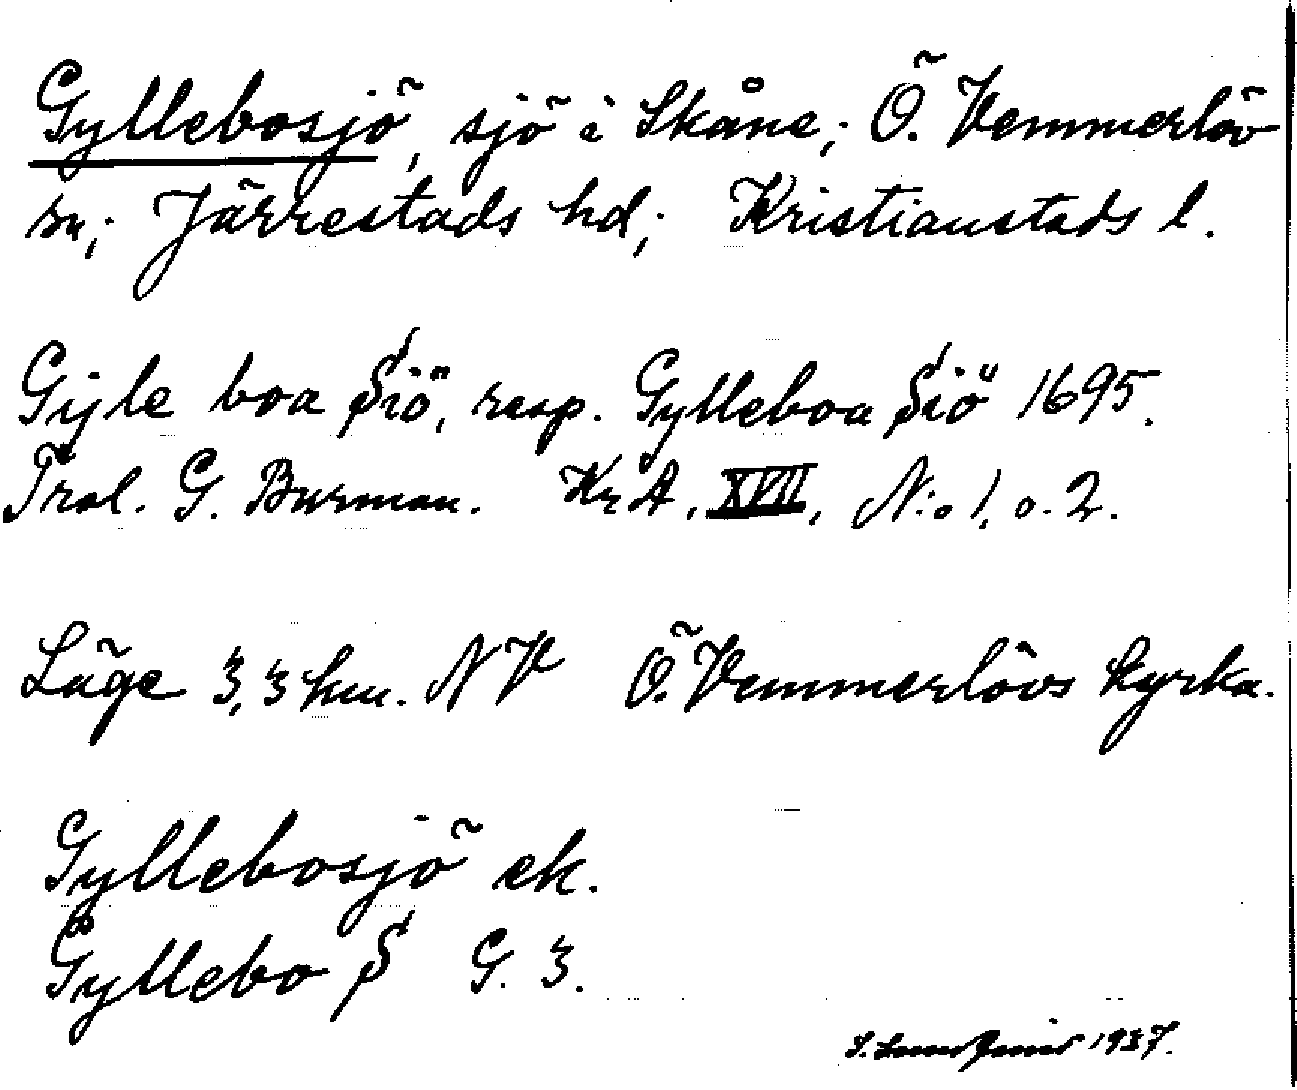 Gyllebosjö, sjö i Skåne; Ö. Vemmerlöv
sn; Järrestads hd; Kristianstads l.
Gijle boa Siö, resp. Gylleboa Siö 1695.
Trol. G. Burman. Kr A, XVII, N:o 1, o. 2.
Läge 3,3 km. NV Ö. Vemmerlövs kyrka.
Gyllebosjö ek.
Gyllebo S G. 3.
1937.